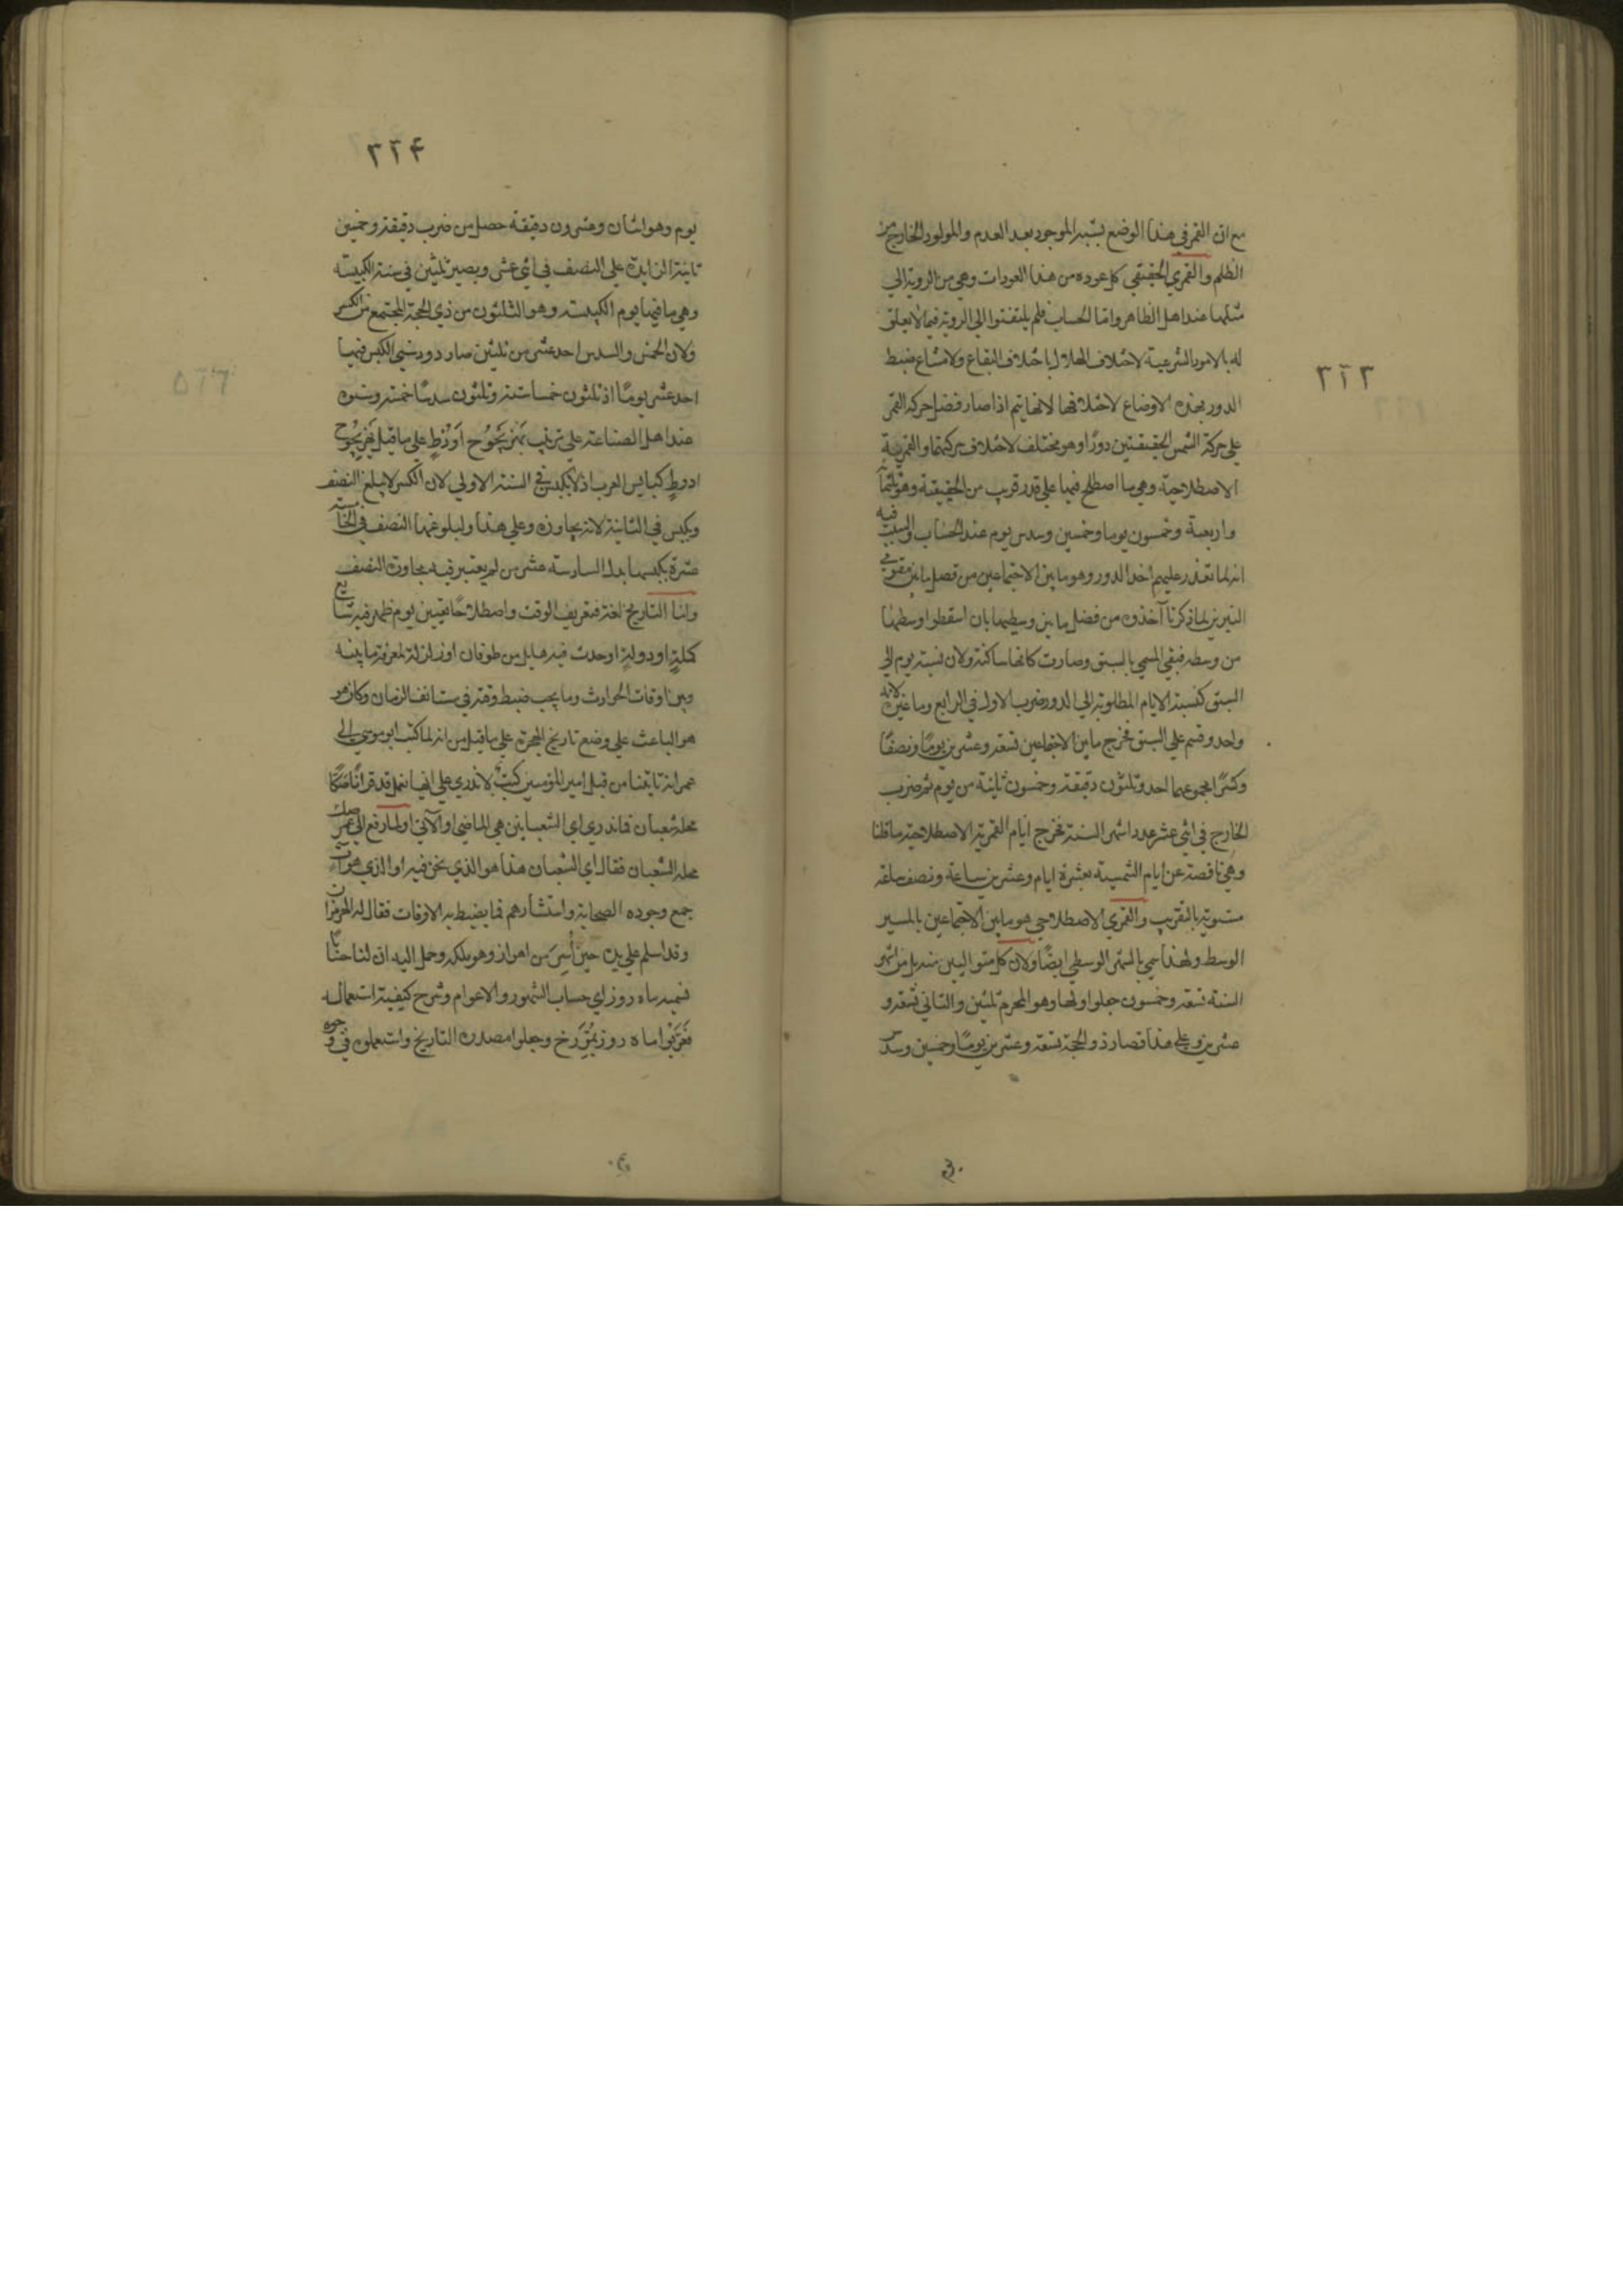 ٢٢٣
مع ان القمر في هذا الوضع يشبه الموجود بعد العدم والمولود الخارج من
الظلم والقمري الحقيقي كل عودة من هذا العودات وهي من الروية الي
مثلها عند اهل الظاهر واما الحساب فلم يلتفتوا الي الروية فيما لا يعلق
له بالامور الشرعية لاختلاف الهلال باختلاف البقاع ولامتناع ضبط
الدور بهذه الاوضاع لاختلافها لانها يتم اذا صار فضل حركة القمر
علي حركة الشمس الحقيقيتين دورا وهو مختلف لاختلاف حركتهما والقمرية
الاصطلاحية وهي ما اصطلح فيها علي قدر قريب من الحقيقية وهو ثلثمائة
واربعة وخمسون يوما وخمسين وسدس يوم عند الحساب والسبب فيه
انه لما تعذر عليهم اخذ الدور وهو ما بين الاجتماعين من فضل ما بين مقومي
النيرين لما ذكرنا آخذوه من فضل ما بين وسطيهما بان اسقطوا وسطها
من وسطه فبقي المسمي بالسبق وصارت كانها ساكنة ولان نسبة يوم الي
السبق كنسبة الايام المطلوبة الي الدور ضرب الاول في الرابع وما غيره لانه
واحد وقسم علي السبق فخرج ما بين الاجتماعين تسعة وعشرين يوما ونصفا
وكسرا مجموعهما احد وثلثون دقيقة وخمسون ثانية من يوم ثم ضرب
الخارج في اثني عشر عدد اشهر السنة فخرج ايام القمرية الاصطلاحية ما قلنا
وهي ناقصة عن ايام الشمسية بعشرة ايام وعشرين ساعة ونصف ساعة
مستوية بالتقريب والقمري الاصطلاحي هو ما بين الاجتماعين بالمسير
الوسط ولهذا سمي بالشهر الوسطي ايضا ولان كل متواليين من اشهر
السنة تسعة وخمسون جعلوا اولها وهو المحرم ثلثين والثاني تسعة و
عشرين وعلي هذا فصار ذو الحجة تسعة وعشرين يوما وخمسين وسدس
٢٢۴
يوم وهو اثنان وعشرون دقيقة حصل من ضرب دقيقة وخمسين
ثانية الزايدة علي النصف في اثني عشر ويصير ثلثين في سنة الكبيسة
وهي ما فيها يوم الكبيسة وهو الثلثون من ذي الحجة المجتمع من الكسر
ولان الخمس والسدس احد عشر من ثلثين صار دور سني الكبس فيها
احد عشر يوما اذ ثلثون خمسا ستة وثلثون سدسا خمسة وسنوه
عند اهل الصناعة علي ترتيب بهزيجوح ادوط علي ما قيل بهزيجوح
ادوط كبايس العرب اذ لا يكبس في السنة الاولي لان الكسر لا يبلغ النصف
ويكبس في الثانية لانه يجاوزه وعلي هذا ولبلوغها النصف في الخامسة
عشرة يكبسها بدل السادسة عشر من لم يعتبر فيه مجاوزة النصف
واما التاريخ لغة فتعريف الوقت واصطلاحا تعيين يوم ظهر فيه شايع
كملة او دولة او حدث فيه هايل من طوفان او زلزلة لمعرفة ما بينه
وبين اوقات الحوادث وما يجب ضبط وقته في مستانف الزمان وكان
هو الباعث علي وضع تاريخ الهجرة علي ما قيل من انه لما كتب ابو موسي الي
عمر انه تاتينا من قبل امير المؤمنين كتب لا ندري علي ايها نعمل قد قرانا صكا
محله شعبان فما ندري اي الشعبانين هي الماضي او الآتي او لما رفع الي عمر صك
محله الشعبان فقال اي الشعبان هذا هو الذي نحن فيه او الذي هو آت
جمع وجوه الصحابة واستشارهم فيما يضبط به الاوقات فقال له الهرمزان
وقد اسلم علي يده حين اسر من اهواز وهو ملكه وحمل اليه ان لنا حسابا
نسميه ماه روز اي حساب الشهور والاعوام وشرح كيفية استعماله
فعربوا ماه روز بمؤرخ وجعلوا مصدره التاريخ واستعملوه في وجوه